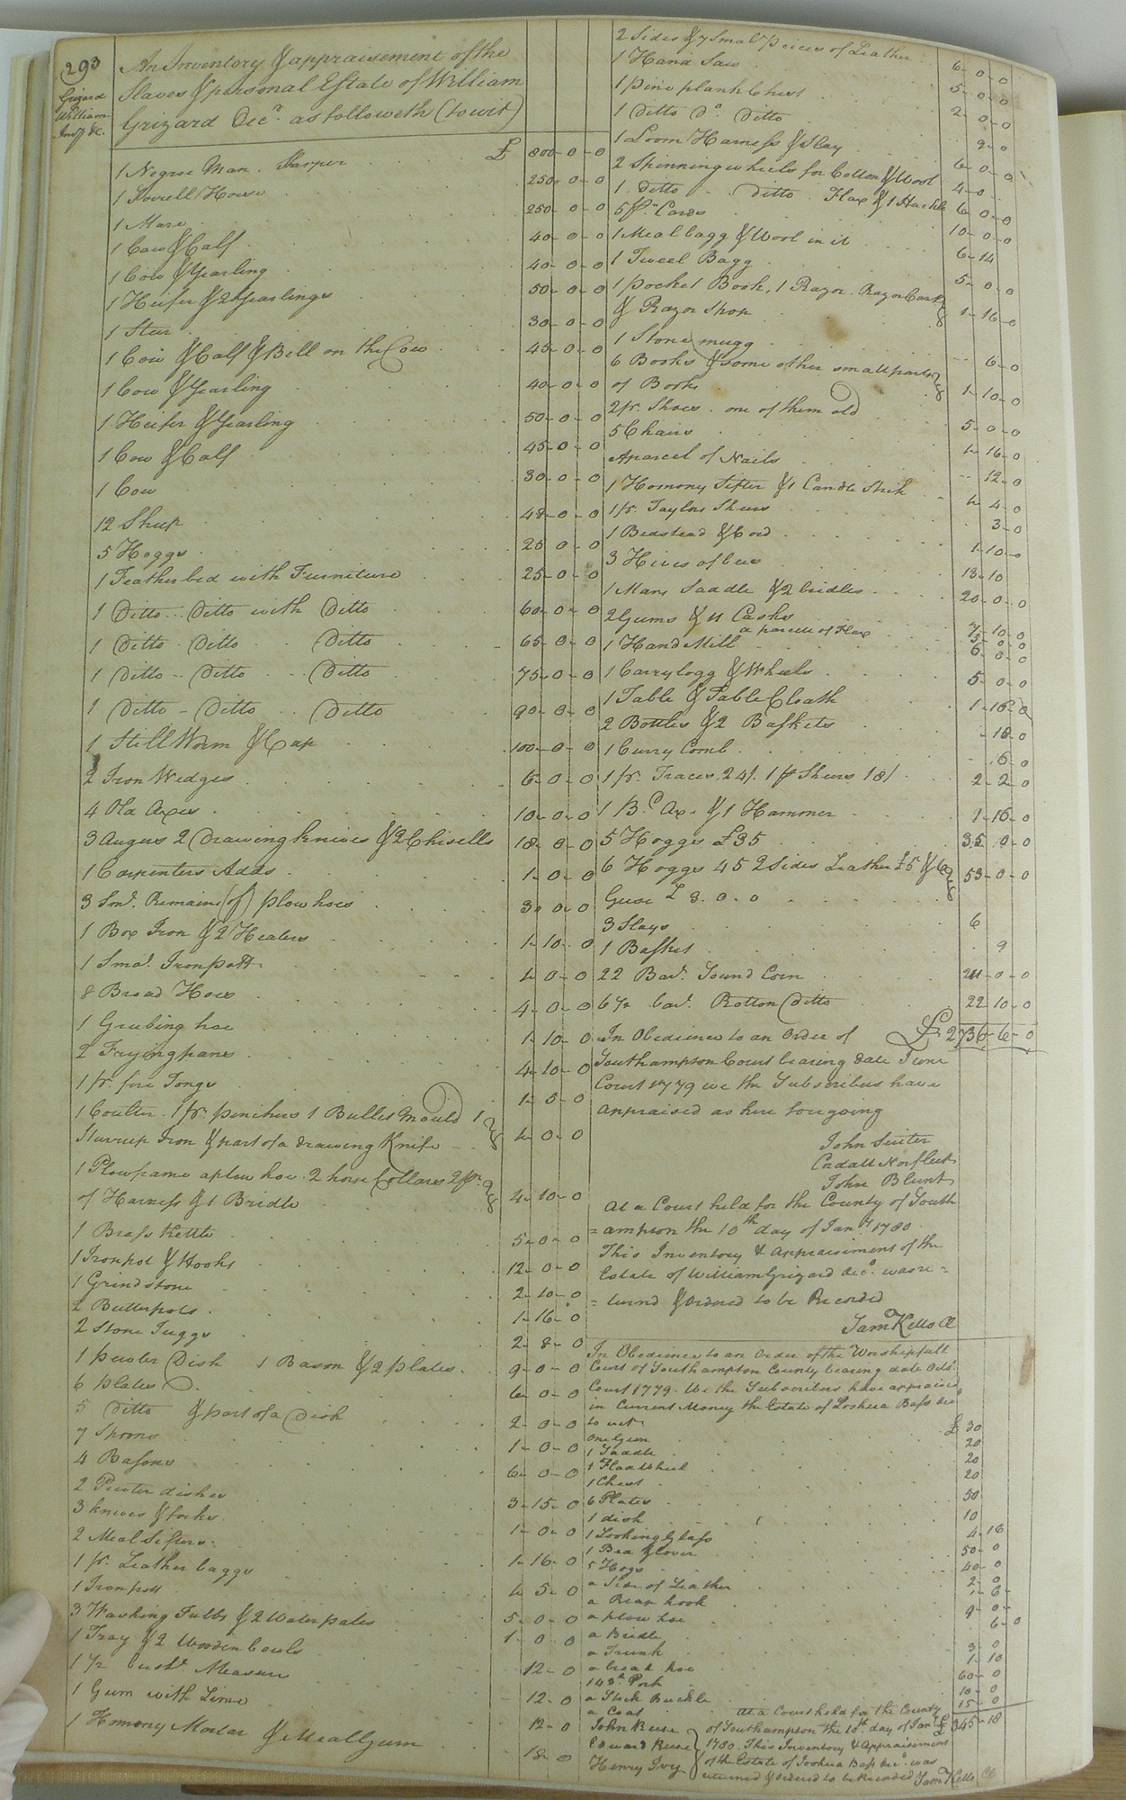 293
Grizard
William
Invy &c.
An Inventory & appraisement of the
Slaves & personal Estate of William
Grizard Decd. as followeth (to wit)
1 Negroe Man Harper £ 800-0-0
1 Sorrell Horse 250-0-0
1 Mare 250-0-0
1 Cow & Calf 40-0-0
1 Cow & Yearling 40-0-0
1 Heifer & 2 Yearlings 50-0-0
1 Steer 30-0-0
1 Cow & Calf & Bell on the Cow 45-0-0
1 Cow & Yearling 40-0-0
1 Heifer & Yearling 50-0-0
1 Cow & Calf 45-0-0
1 Cow 30-0-0
12 Sheep 48-0-0
5 Hoggs 25-0-0
1 Feather bed with Furniture 25-0-0
1 Ditto Ditto with Ditto 60-0-0
1 Ditto Ditto Ditto 65-0-0
1 Ditto Ditto Ditto 75-0-0
1 Ditto Ditto Ditto 90-0-0
1 Still Worm & Cap 100-0-0
2 Iron Wedges 6-0-0
4 Old Axes 10-0-0
3 Augers 2 Drawing knives & 2 Chisells 18-0-0
1 Carpenters Adds 1-0-0
3 Sml. Remains (of) plow hoes 3-0-0
1 Box Iron & 2 Heaters 1-10-0
1 Smal. Iron pott 4-0-0
8 Broad Hoes 4-0-0
1 Grubing hoe 1-10-0
2 Frying pans 4-10-0
1 pr. fire Tongs 1-5-0
1 Coulter. 1 pr. pinchers 1 Bullet Mould 1
Sturrup Iron & part of a drawing Knife 4-0-0
1 Plow frame a plow hoe 2 horse Collars 2 pr.
of Harness & 1 Bridle 4-10-0
1 Brass Kettle 5-0-0
1 Iron pot & Hooks 12-0-0
1 Grindstone 2-10-0
2 Butterpots 1-16-0
2 Stone Juggs 2-8-0
1 pewter Dish 1 Bason & 2 plates 9-0-0
6 plates Do. 6-0-0
5 ditto & part of a Dish 2-0-0
7 Spoons 1-0-0
4 Basons 6-0-0
2 Pewter dishes 3-15-0
3 knives & forks 1-0-0
2 Meal Sifters 1-16-0
1 pr. Leather baggs 4-5-0
1 Iron pott 5-0-0
3 Washing Tubbs & 2 Water pales 1-0-0
1 Tray & 2 Wooden bowls 12-0
1 1/2 bushl. Measure 12-0
1 Gum with Lime 12-0
1 Homony Morter & Meal Gum 18-0
2 Sides & 7 Small Peices of Leather 6-0-0
1 Hand Saw 5-0-0
1 pine plank Chest 2-0-0
1 Ditto Do. Ditto 9-0
1 Loom Harness & Slay 6-0-0
2 Spinning wheels for Cotton & Wool 4-0
1 ditto ditto Flax & 1 Hackle 6-0-0
5 pr. Cards 10-0-0
1 Meal bagg & Wool in it 6-14
1 Tweel Bagg 5-0-0
1 pocket Book, 1 Razor. Razor Case
& Razor Strop 1-16-0
1 Stone mugg 6-0
6 Books & some other small parts
of Books 1-10-0
2 pr. Shoes one of them old 5-0-0
5 Chairs 1-16-0
A parcel of Nails 12-0
1 Homony Sifter & 1 Candle Stick 4-4-0
1 pr. Taylors Shears 3-0
1 Bedstead & Cord 1-10-0
3 Hives of bees 13-10
1 Mans Saddle & 2 bridles 20-0-0
2 Gums & 11 Casks 7-10-0
a parcel of Flax 5-0-0
1 Hand Mill 6-0-0
1 Carrylogg & Wheels 5-0-0
1 Table & Table Cloath 1-16-0
2 Bottles & 2 Baskets 18-0
1 Curry Comb 6-0
1 pr. Traces 24/. 1 pr Shears 18/ 2-2-0
1 Bd. Ax. & 1 Hammer 1-16-0
5 Hoggs £35 35-0-0
6 Hoggs 45 2 Sides Leather £5 & 6
Geese £3.0.0 53-0-0
3 Slays 6
1 Basket 9
22 Bar. Sound Corn 211-0-0
6 1/2 bar. Rotton Ditto 22-10-0
£ 2736-6-0
In Obedience to an Order of
Southampton Court bearing date June
Court 1779 we the Subscribers have
appraised as here foregoing
John Suiter
Cordall Norfleet
John Blunt
At a Court held for the County of South
=ampton the 10th day of Jany. 1780
This Inventory & Appraisement of the
Estate of William Grizard decd. was re=
=turnd & ordered to be Recorded
Saml Kello Cl
In Obedience to an Order of the Worshipfull
Court of Southampton County bearing date Octr.
Court 1779. We the Subscribers have appraised
in Current Money the Estate of Joshua Bass Decd
to wit
One Gun £ 30
1 Saddle 20
1 Flax Wheel 20
1 Chest 20
6 Plates 30
1 dish 10
1 Looking Glass 4-16
1 Bed & Cover 50-0
5 Hogs 40-0
a Side of Leather 2-0
a Reap hook 1-6-
a plow hoe 9-0-
a Bridle 6-0
a Trunk 3-0
a broad hoe 1-10
148lb. Pork 60-0
a Stock Buckle 10-0
a Coat 15-0
£ 345-18
John Rease
Edward Rease
Henry Ivy
At a Court held for the County
of Southampton the 10th day of Jany.
1780. This Inventory & Appraisement
of the Estate of Joshua Bass decd. was
returned & ordered to be Recorded Saml Kello Cl